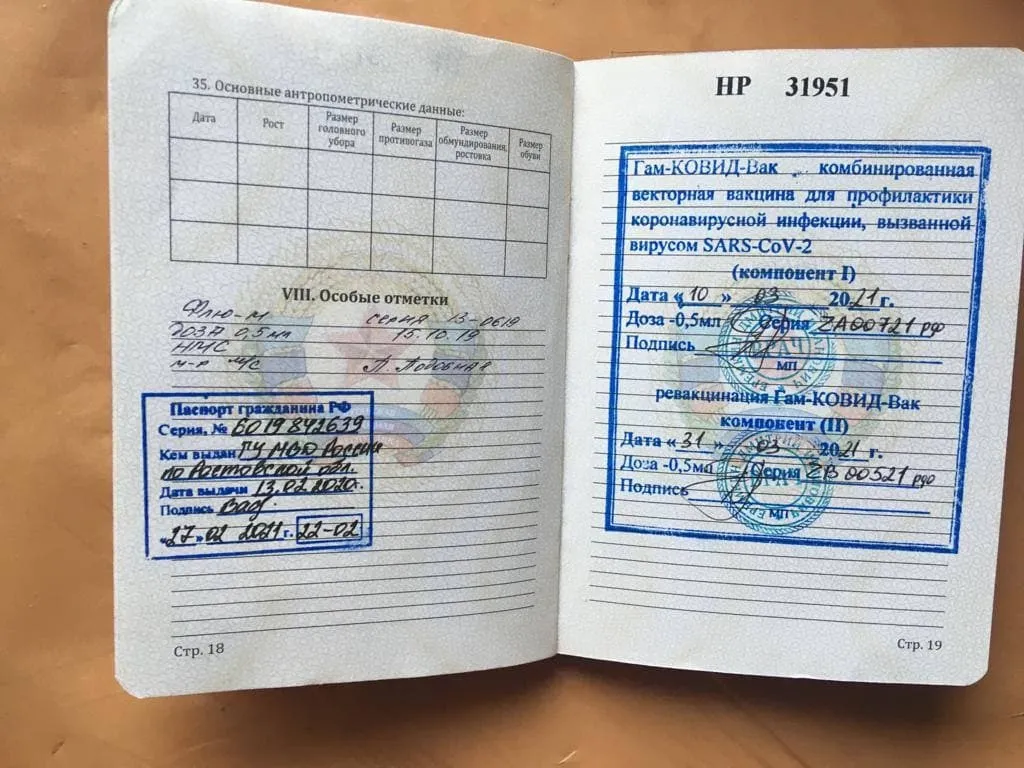 35. Основные антропометрические данные:
Дата Рост Размер головного убора Размер противогаза Размер обмундирования, ростовка Размер обуви
VIII. Особые отметки
Флю-М серия 13-0619
доза 0,5 мл 15.10.19
НМС
м-р м/с А. Подобная
Паспорт гражданина РФ
Серия, № 6019842639
Кем выдан ГУ МВД России
по Ростовской обл.
Дата выдачи 13.02.2020г.
Подпись
«27» 02 2021 г. 22-02
Стр. 18
НР 31951
Гам-КОВИД-Вак комбинированная
векторная вакцина для профилактики
коронавирусной инфекции, вызванной
вирусом SARS-CoV-2
(компонент I)
Дата «10» 03 2021 г.
Доза -0,5мл Серия ZA00721 рф
Подпись
МП
ревакцинация Гам-КОВИД-Вак
компонент (II)
Дата «31» 03 2021 г.
Доза -0,5мл Серия ZB00521 рф
Подпись
МП
Стр. 19